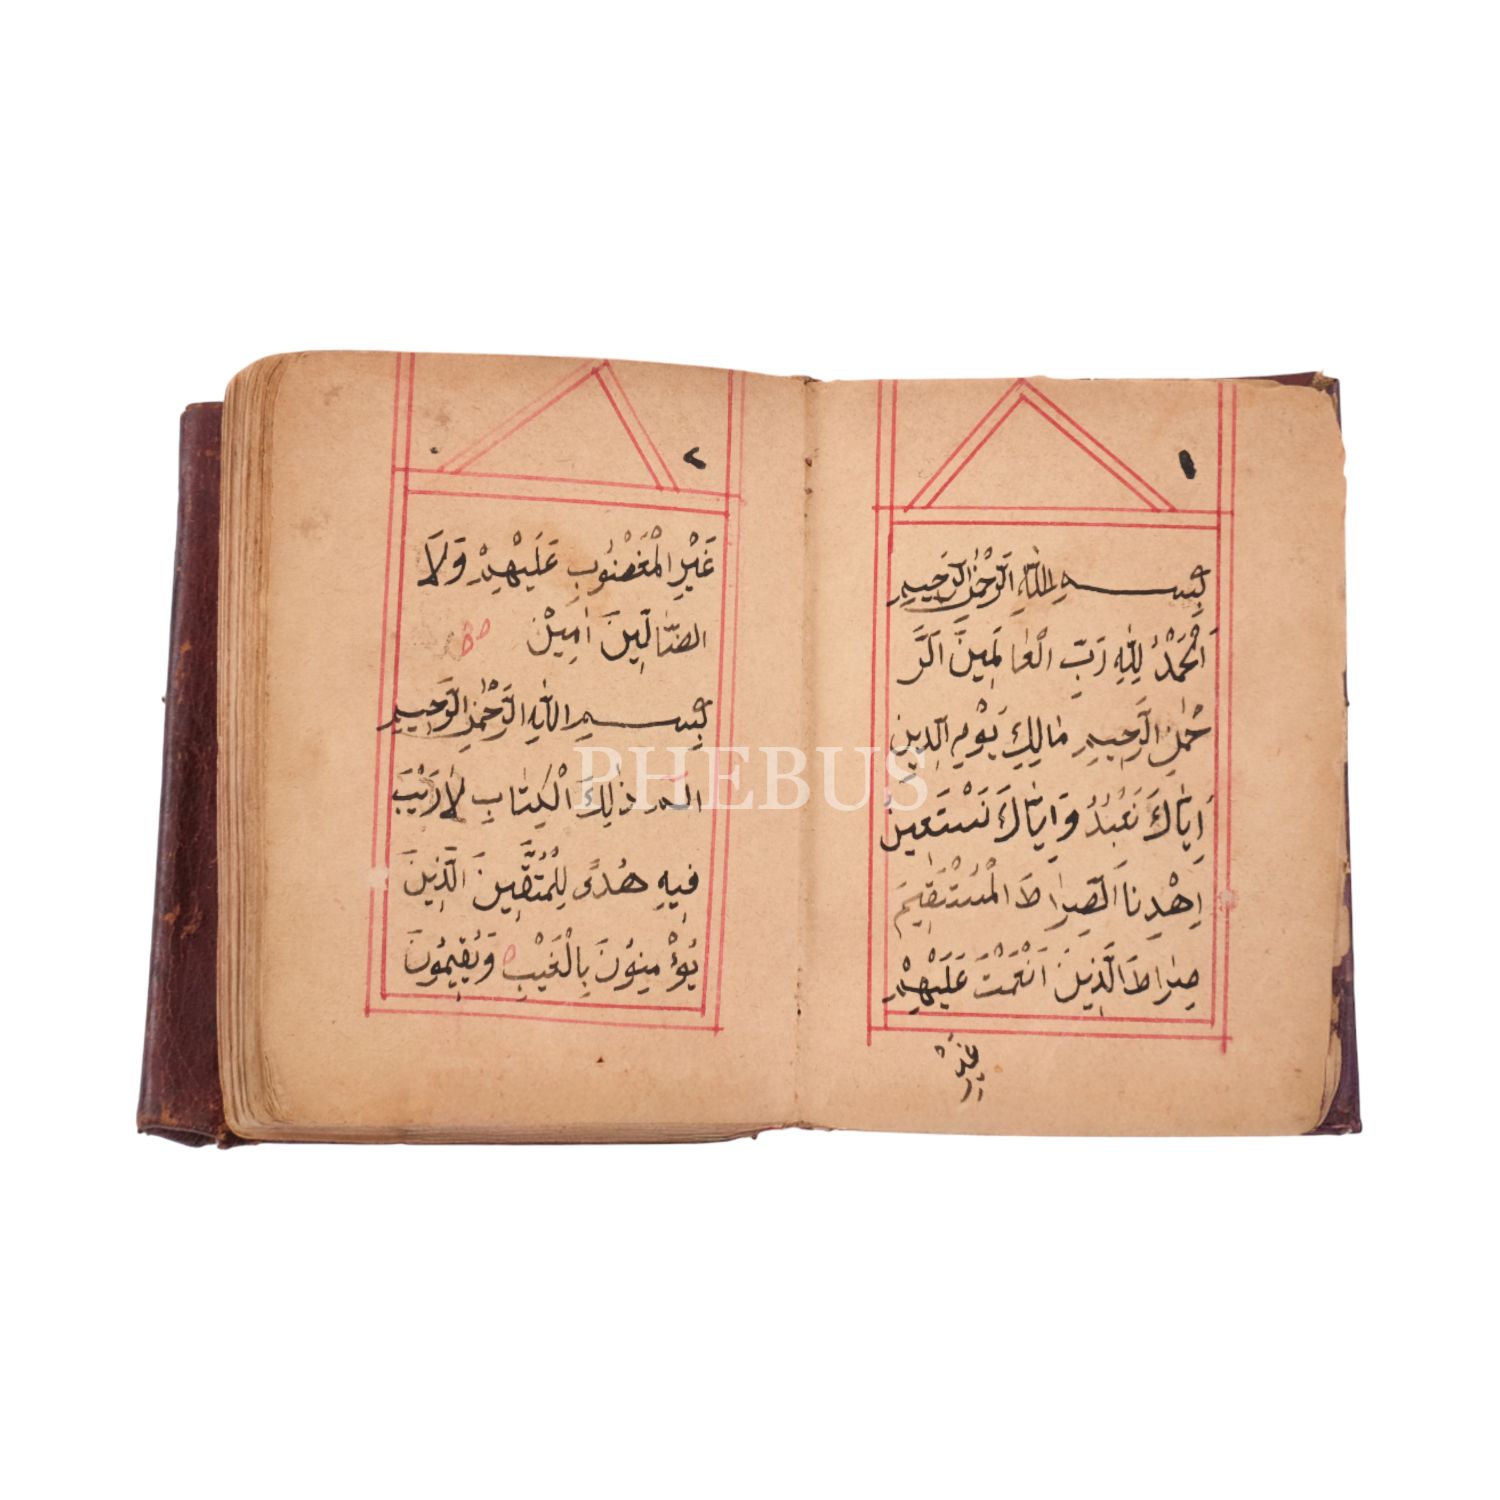 ١
بِسْــمِ اللهِ الرَّحْمٰنِ الرَّحِيمِ
اَلْحَمْدُ لِلّٰهِ رَبِّ الْعَالَمِينَ اَلرَّ
حْمٰنِ الرَّحِيمِ مَالِكِ يَوْمِ الدِّينِ
اِيَّاكَ نَعْبُدُ وَاِيَّاكَ نَسْتَعِينُ
اِهْدِنَا الصِّرَاطَ الْمُسْتَقِيمَ
صِرَاطَ الَّذِينَ اَنْعَمْتَ عَلَيْهِمْ
غَيْرِ
٢
غَيْرِ الْمَغْضُوبِ عَلَيْهِمْ وَلَا
الضَّالِّينَ اٰمِينْ
بِسْــمِ اللهِ الرَّحْمٰنِ الرَّحِيمِ
الٓمٓ ذٰلِكَ الْكِتَابِ لَا رَيْبَ
فِيهِ هُدًى لِلْمُتَّقِينَ الَّذِينَ
يُؤْمِنُونَ بِالْغَيْبِ وَيُقِيمُونَ
PHEBUS